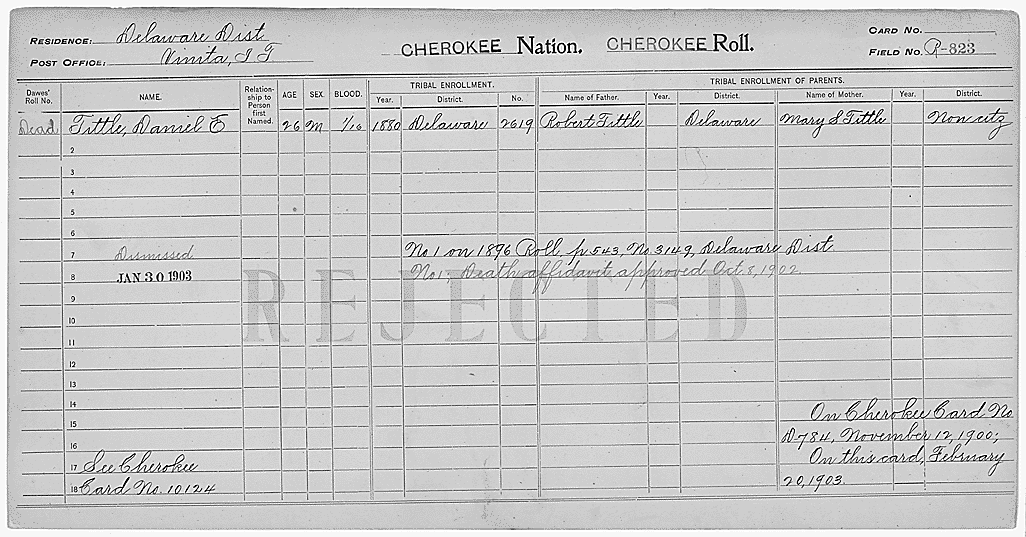 RESIDENCE: Delaware Dist
POST OFFICE: Vinita, I T
CHEROKEE Nation. CHEROKEE Roll.
CARD NO.
FIELD NO. R-823
Dawes' Roll No.
NAME.
Relationship to Person first Named.
AGE
SEX.
BLOOD.
TRIBAL ENROLLMENT.
Year.
District.
No.
TRIBAL ENROLLMENT OF PARENTS.
Name of Father.
Year.
District.
Name of Mother.
Year.
District.
Dead Tittle, Daniel E 26 M 1/16 1880 Delaware 2619 Robert Tittle Delaware Mary S Tittle Non citz
2
3
4
5
6
7 Dismissed No 1 on 1896 Roll, p 543, No. 3149, Delaware Dist
8 JAN 30 1903 No 1; Death affidavit approved Oct. 8, 1902
REJECTED
9
10
11
12
13
14 On Cherokee Card No
15 D-784, November 12, 1900;
16 On this card, February
17 See Cherokee
20, 1903.
18 Card No. 10124